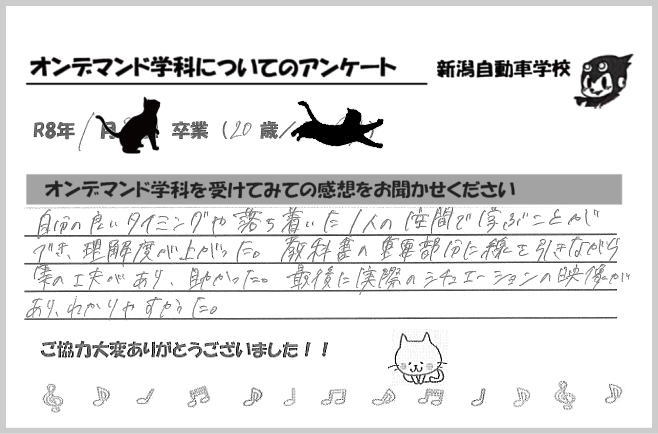 オンデマンド学科についてのアンケート 新潟自動車学校
R8年 1月 卒業 (20 歳/
オンデマンド学科を受けてみての感想をお聞かせください
自分の良いタイミングや落ち着いた1人の空間で学ぶことが
でき、理解度が上がった。教科書の重要部分に線を引きながら
の工夫があり、助かった。最後に実際のシチュエーションの映像が
あり、わかりやすかった。
ご協力大変ありがとうございました!!